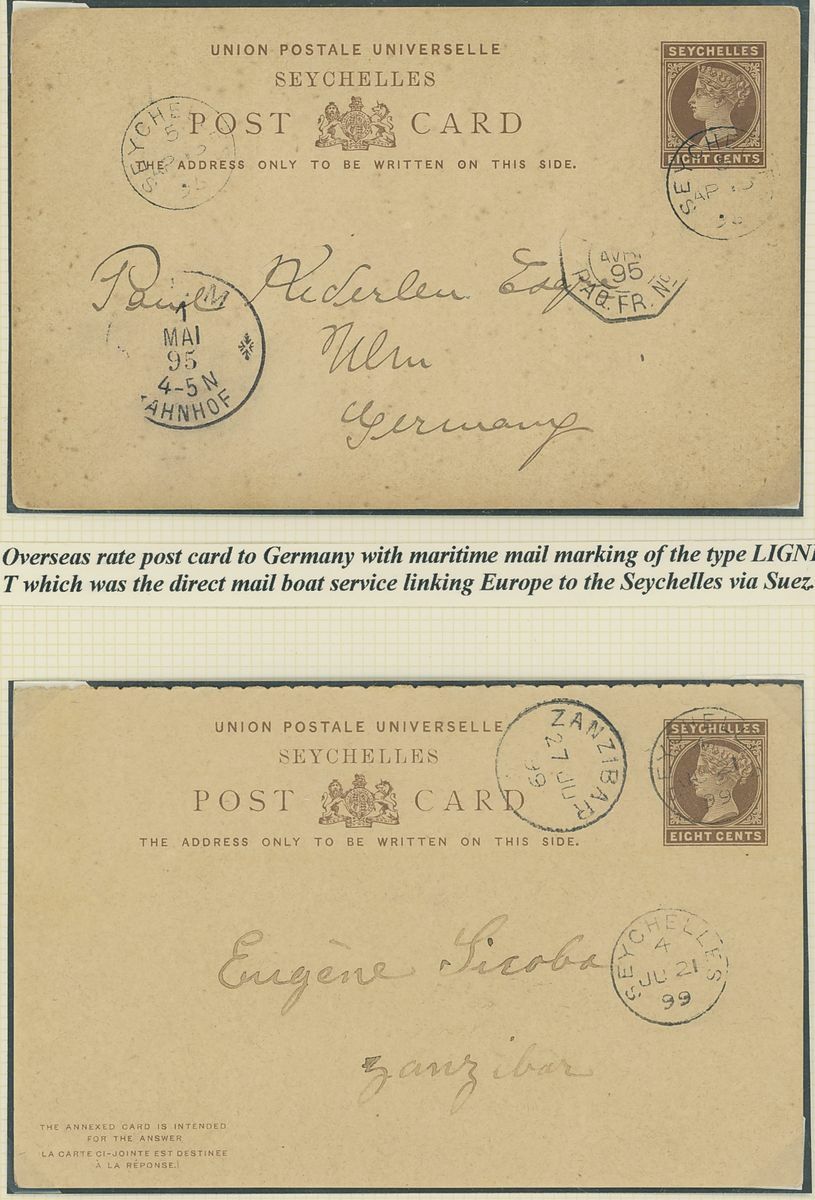 UNION POSTALE UNIVERSELLE
SEYCHELLES
SEYCHELLES
POST CARD
THE ADDRESS ONLY TO BE WRITTEN ON THIS SIDE.
EIGHT CENTS
SEYCHE
5
AP
95
SEYCHE
AP
95
Paul Kederlen Esq
Ulm
Germany
AVRIL
95
PAQ. FR. No
M
1
MAI
95
4-5 N
BAHNHOF
Overseas rate post card to Germany with maritime mail marking of the type LIGN
T which was the direct mail boat service linking Europe to the Seychelles via Suez.
UNION POSTALE UNIVERSELLE
SEYCHELLES
SEYCHELLES
POST CARD
THE ADDRESS ONLY TO BE WRITTEN ON THIS SIDE.
EIGHT CENTS
ZANZIBAR
27 JU
99
SEYCHELLES
4
JU 21
99
Eugène Sicoba
Zanzibar
THE ANNEXED CARD IS INTENDED
FOR THE ANSWER
LA CARTE CI-JOINTE EST DESTINÉE
À LA RÉPONSE.